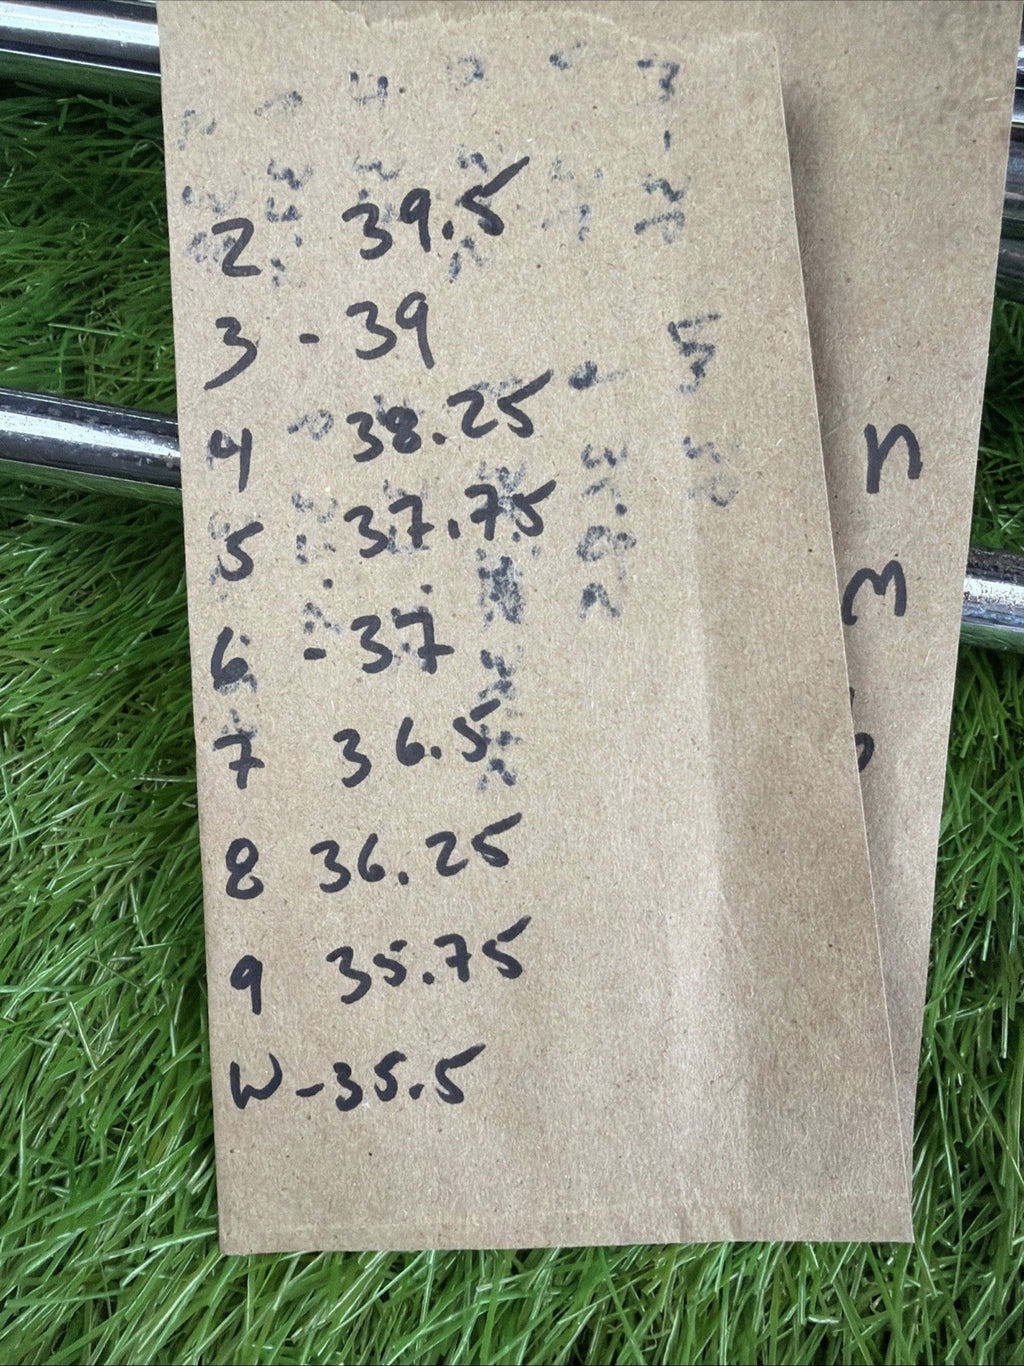 2 39.5
3 - 39
4 38.25
5 37.75
6 - 37
7 36.5
8 36.25
9 35.75
W - 35.5
n
m